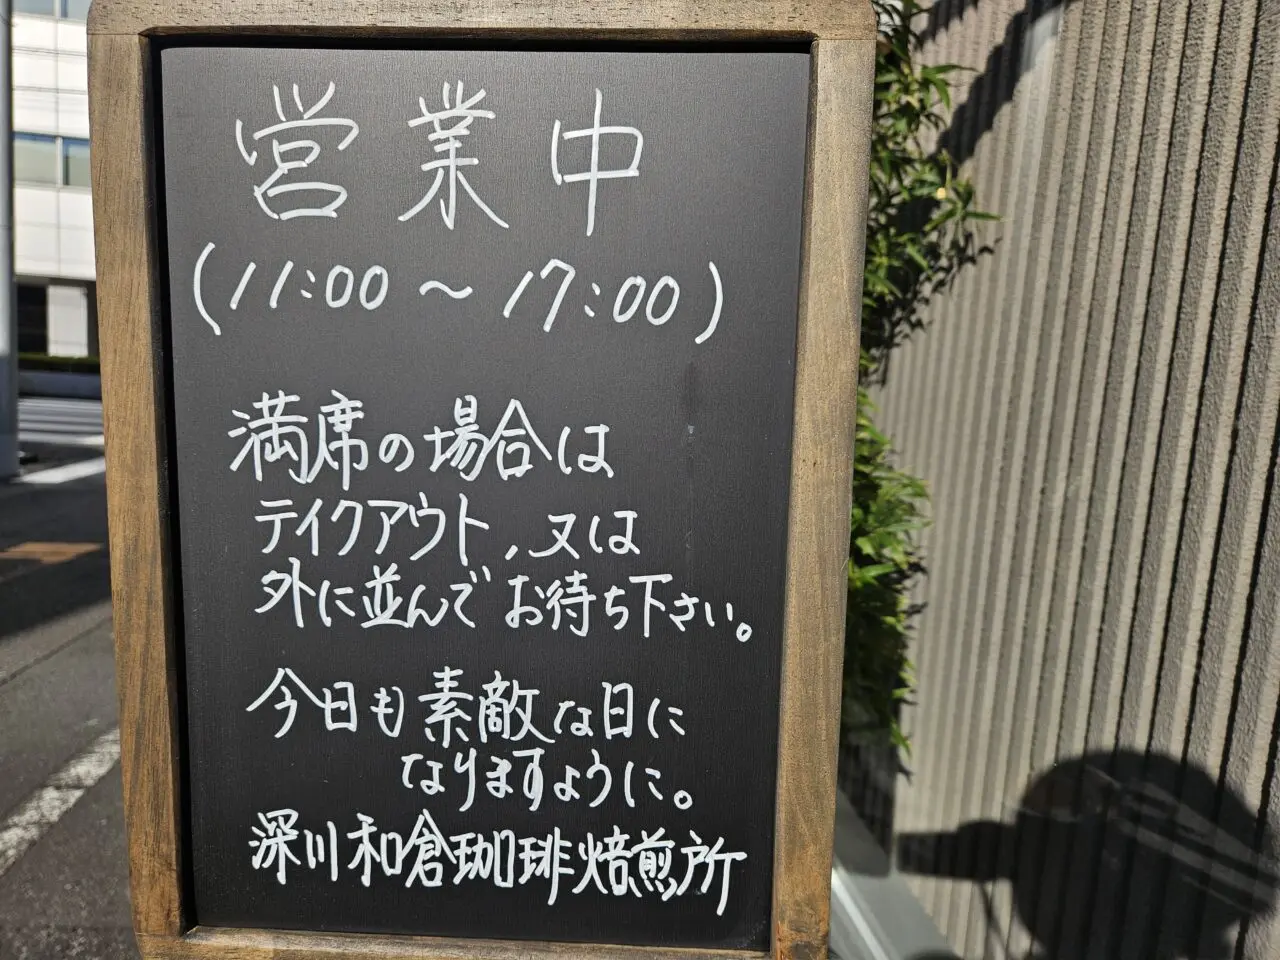 営業中
(11:00～17:00)
満席の場合は
テイクアウト、又は
外に並んでお待ち下さい。
今日も素敵な日に
なりますように。
深川和倉珈琲焙煎所